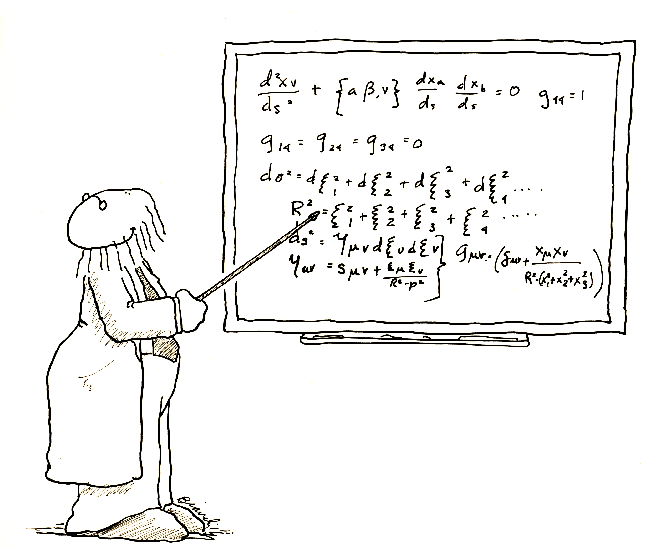 d²xν/ds² + {αβ,ν} dxa/ds dxb/ds = 0 g44 = 1
g14 = g24 = g34 = 0
dσ² = dξ²1 + dξ²2 + dξ²3 + dξ²4 ....
R² = ξ²1 + ξ²2 + ξ²3 + ξ²4 .....
ds² = γμν dξυ dξν
γμν = δμν + ξμ ξν/R²-ρ² } gμν = (δμν + xμ xν/R²-(x²1+x²2+x²3))